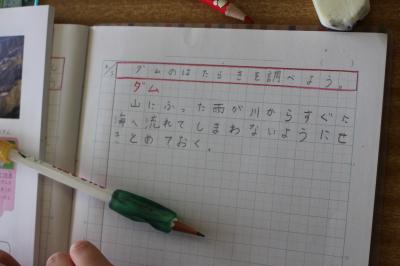 ダムのはたらきを調べよう。
ダム
山にふった雨が川からすぐに
海へ流れてしまわないようにせ
きとめておく。